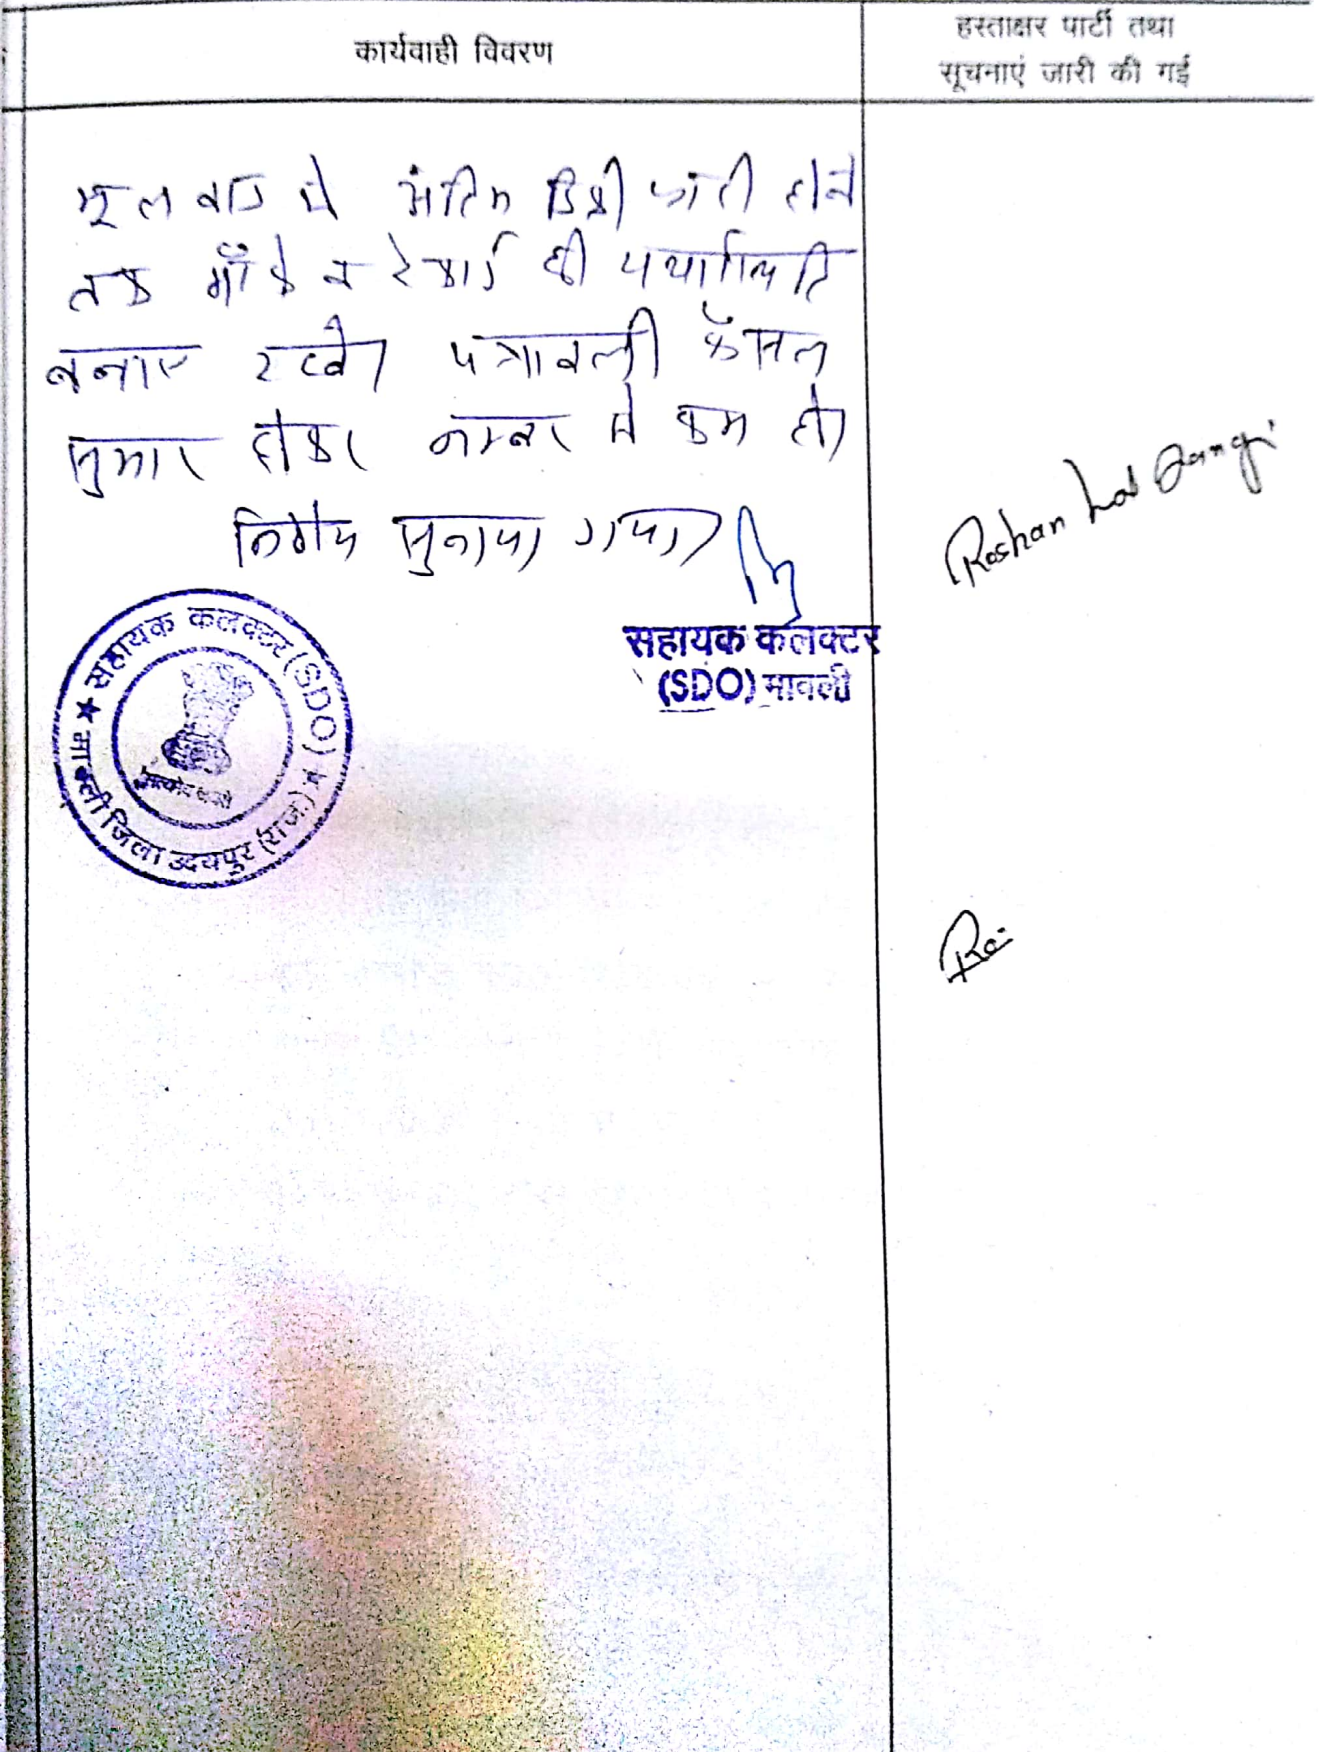 कार्यवाही विवरण
हस्ताक्षर पार्टी तथा
सूचनाएं जारी की गई
मूल वाद में अंतिम डिक्री जारी होने
तक मौके व रेकार्ड की यथास्थिति
बनाए रखें। पत्रावली फैसल
सुमार होकर नम्बर से कम हो।
निर्णय सुनाया गया।
सहायक कलक्टर
(SDO) मावली
Roshan Lal Dangi
★ सहायक कलक्टर (SDO) ★
मावली जिला उदयपुर (राज.)
सत्यमेव जयते